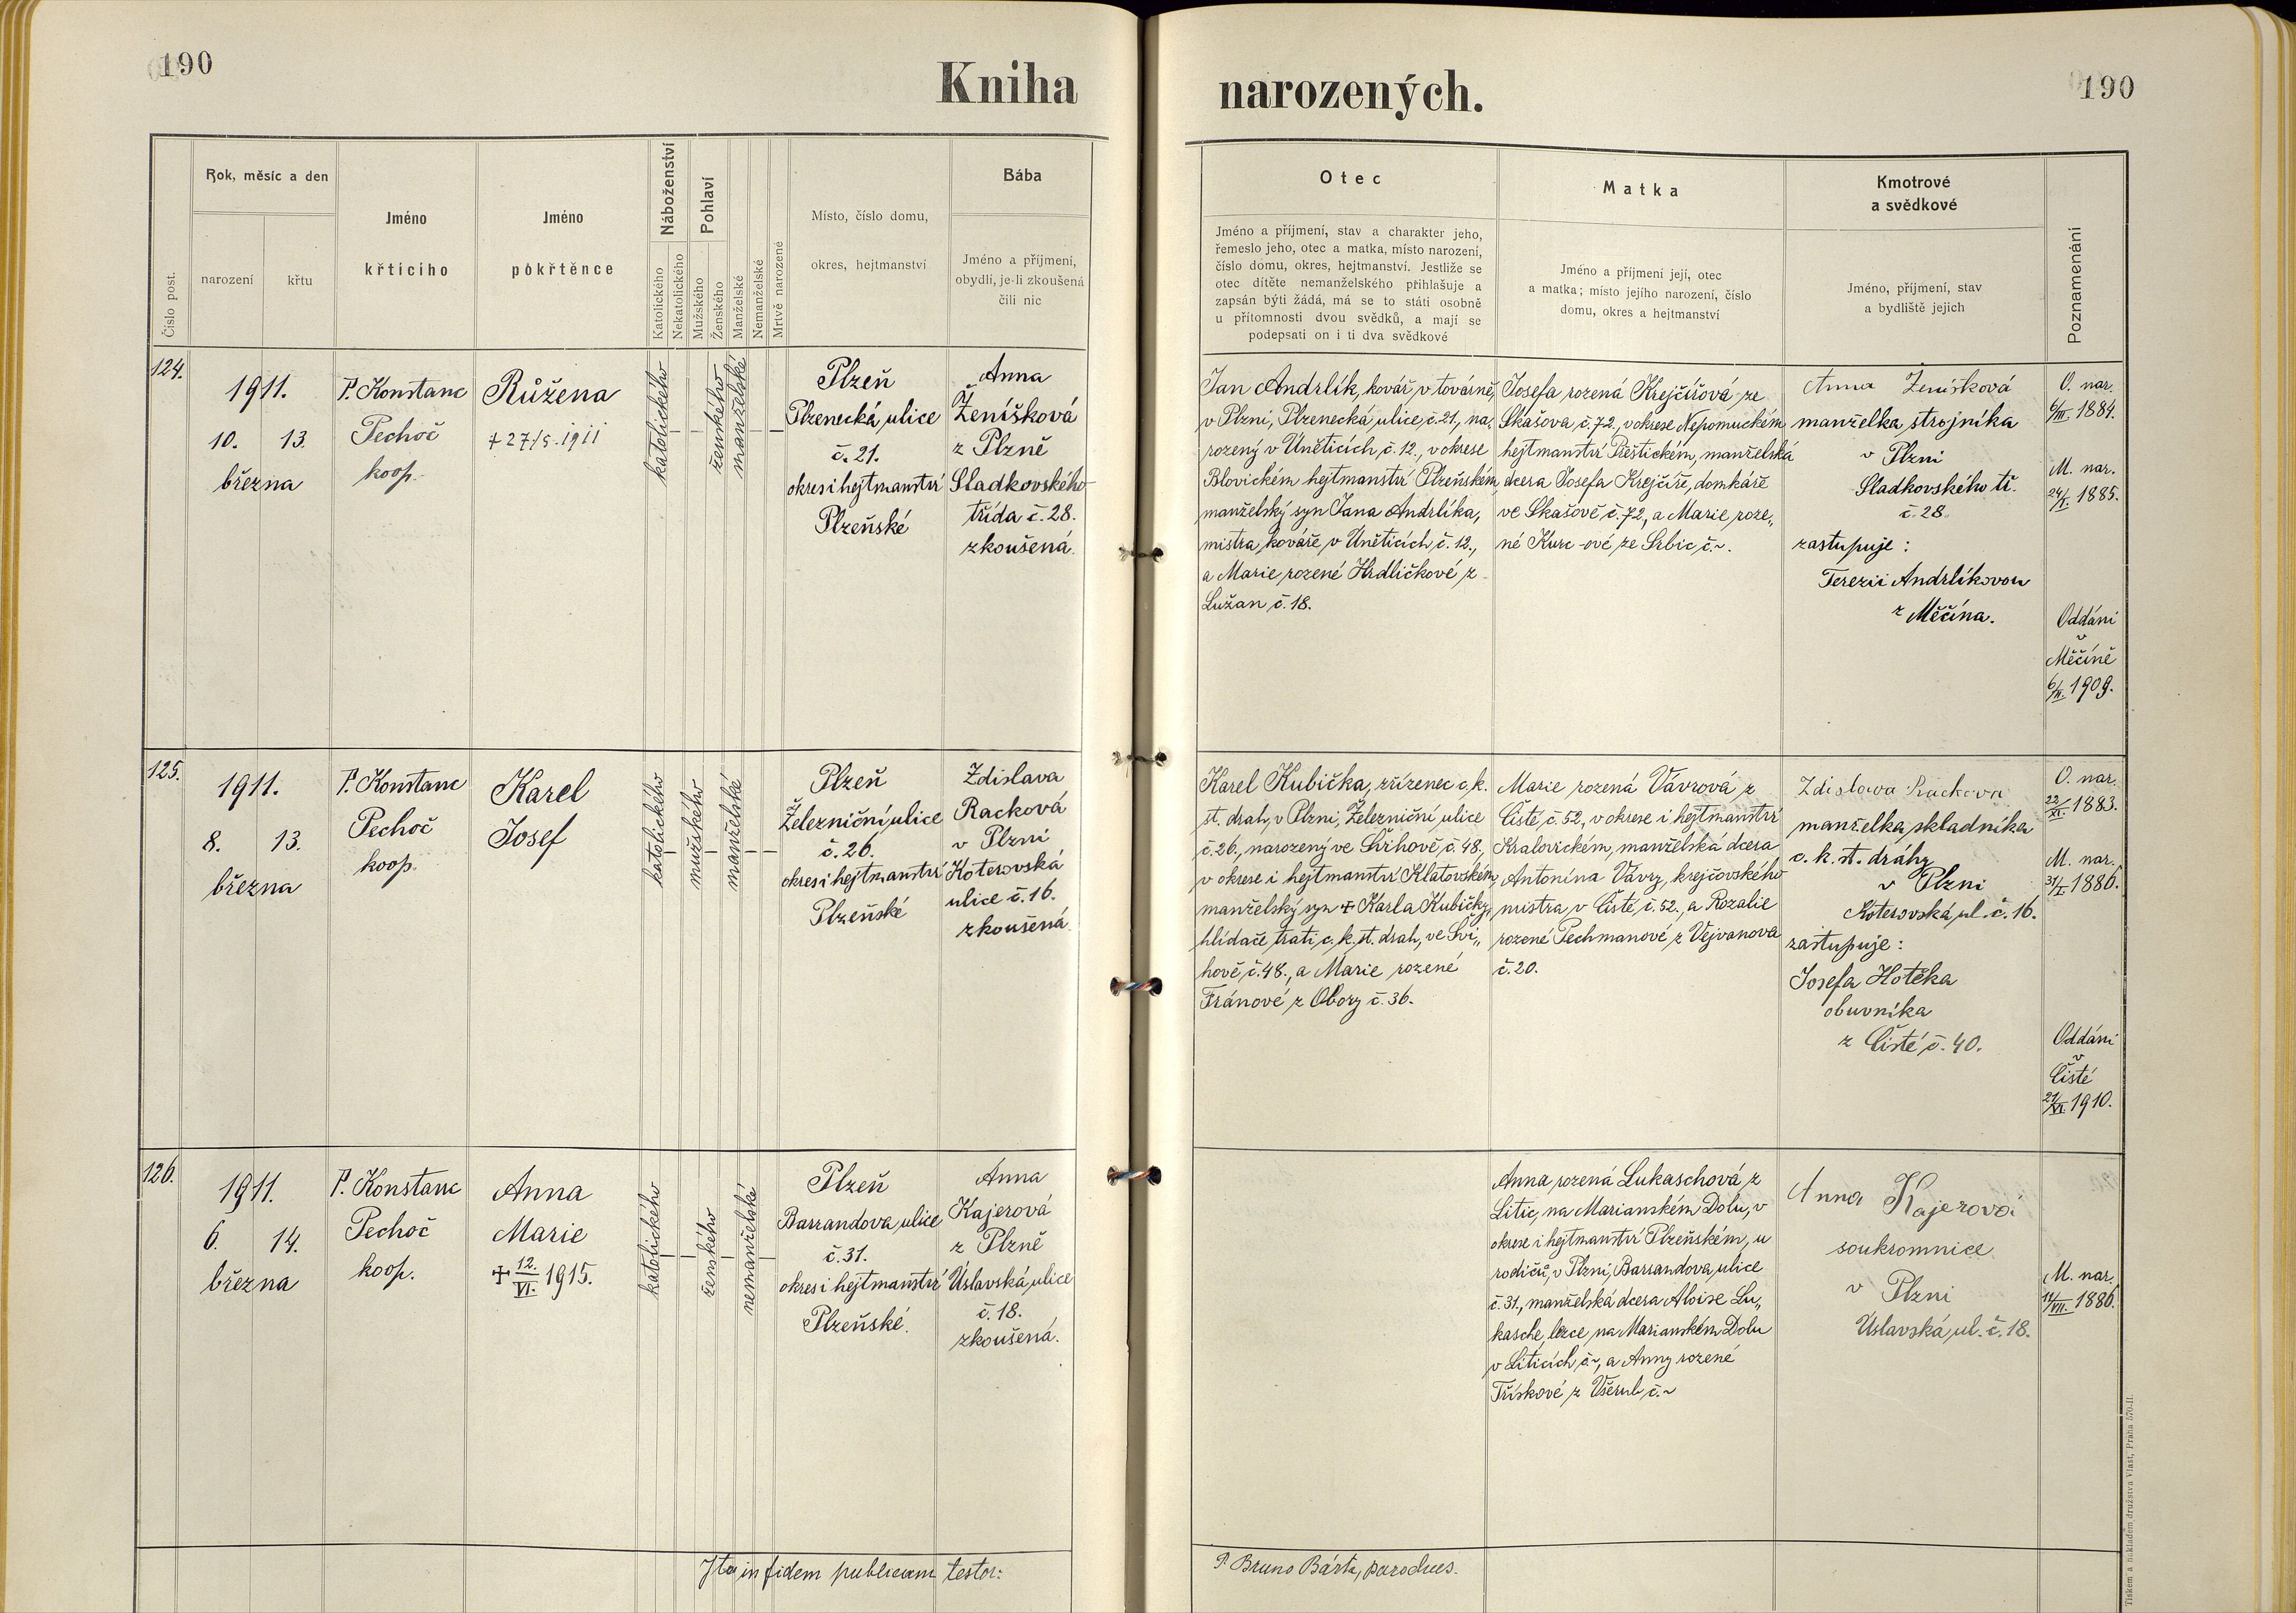 190
Kniha narozených.
190
Číslo post.
Rok, měsíc a den
narození
křtu
Jméno
křtícího
Jméno
pokřtěnce
Náboženství
Katolického
Nekatolického
Pohlaví
Mužského
Ženského
Manželské
Nemanželské
Mrtvě narozené
Místo, číslo domu,
okres, hejtmanství
Bába
Jméno a příjmení,
obydlí, je-li zkoušená
čili nic
Otec
Jméno a příjmení, stav a charakter jeho,
řemeslo jeho, otec a matka, místo narození,
číslo domu, okres, hejtmanství. Jestliže se
otec dítěte nemanželského přihlašuje a
zapsán býti žádá, má se to státi osobně
u přítomnosti dvou svědků, a mají se
podepsati on i ti dva svědkové
Matka
Jméno a příjmení její, otec
a matka; místo jejího narození, číslo
domu, okres a hejtmanství
Kmotrové
a svědkové
Jméno, příjmení, stav
a bydliště jejich
Poznamenání
124.
1911.
10. 13.
března
P. Konstanc
Pechoč
koop.
Růžena
+ 27/5. 1911
katolického
ženského
manželské
Plzeň
Plzenecká ulice
č. 21.
okres i hejtmanství
Plzeňské
Anna
Ženíšková
z Plzně
Sladkovského
třída č. 28.
zkoušená.
Jan Andrlík, kovář v továrně,
v Plzni, Plzenecká ulice, č. 21., na,
rozený v Únětičích, č. 12., v okrese
Blovickém hejtmanství Plzeňském,
manželský syn Jana Andrlíka,
mistra kováře, v Únětičích, č. 12.,
a Marie rozené Hrdličkové z
Lužan č. 18.
Josefa rozená Krejčířová ze
Skašova č. 72., v okrese Nepomuckém
hejtmanství Přeštickém, manželská
dcera Josefa Krejčíře, domkáře
ve Skašově č. 72., a Marie roze„
né Kurc-ové ze Srbic, č. ~.
Anna Ženíšková
manželka strojníka
v Plzni
Sladkovského tř.
č. 28.
zastupuje:
Terezii Andrlíkovou
z Měčína.
O. nar.
6/III. 1884.
M. nar.
24/I. 1885.
Oddáni
v
Měčíně
1909.
125.
1911.
8. 13.
března
P. Konstanc
Pechoč
koop.
Karel
Josef
katolického
mužského
manželské
Plzeň
Železniční ulice
č. 26.
okres i hejtmanství
Plzeňské
Zdislava
Racková
v Plzni
Koterovská
ulice č. 16.
zkoušená.
Karel Kubička, zřízenec c. k.
st. drah, v Plzni, Železniční ulice
č. 26., narozený ve Švihově, č. 48.,
v okrese i hejtmanství Klatovském,
manželský syn + Karla Kubičky,
hlídače trati c. k. st. drah, ve Švi„
hově, č. 48., a Marie rozené
Fránové z Obory č. 36.
Marie rozená Vávrová z
Čisté, č. 52, v okrese i hejtmanství
Kralovickém, manželská dcera
Antonína Vávry, krejčovského
mistra, v Čisté, č. 52., a Rozalie
rozené Pechmanové z Vejvanova
č. 20.
Zdislava Racková
manželka skladníka
c. k. st. dráhy
v Plzni
Koterovská ul. č. 16.
zastupuje:
Josefa Hotěka
obuvníka
z Čisté č. 40.
O. nar.
22/XI. 1883.
M. nar.
31/I. 1886.
Oddáni
v
Čisté
21/VI. 1910.
126.
1911.
6. 14.
března
P. Konstanc
Pechoč
koop.
Anna
Marie
+ 12./VI. 1915.
katolického
ženského
nemanželské
Plzeň
Barrandova ulice
č. 31.
okres i hejtmanství
Plzeňské.
Anna
Kajerová
z Plzně
Úslavská ulice
č. 18.
zkoušená.
Anna rozená Lukaschová z
Litic, na Marianském Dolu, v
okrese i hejtmanství Plzeňském, u
rodičů, v Plzni, Barrandova ulice
č. 31., manželská dcera Aloise Lu„
kasche, lezce na Marianském Dolu
v Liticích č. ~, a Anny rozené
Třískové z Všerub, č. ~
Anna Kajerová
soukromnice
v Plzni
Úslavská ul. č. 18.
M. nar.
14/VII. 1886.
Ita in fidem publicam testor:
P. Bruno Bárta, parochus.
Tiskem a nákladem družstva Vlast, Praha 570-II.